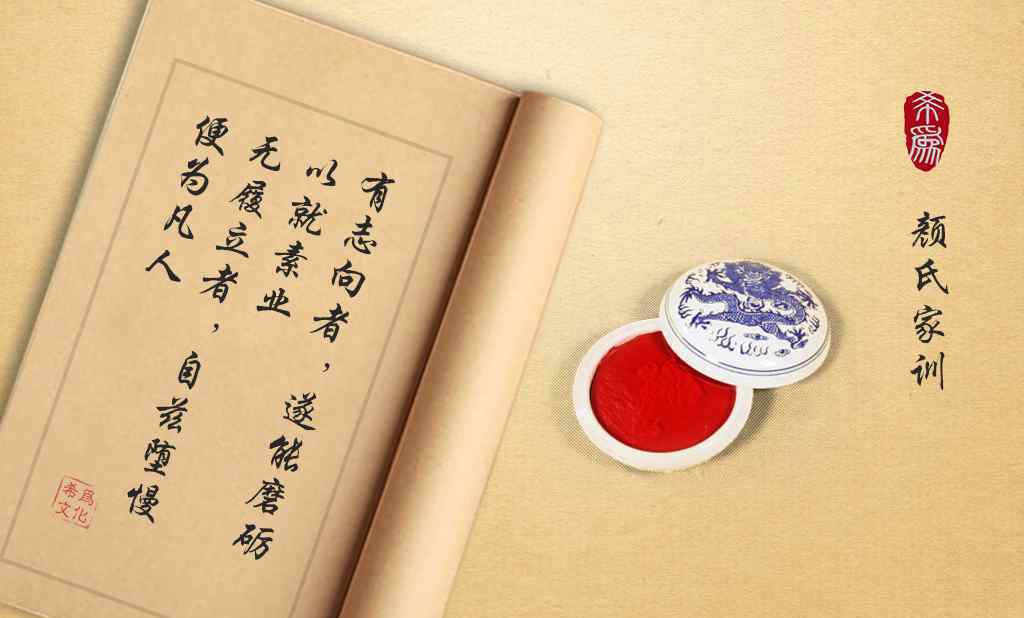 有志向者，遂能磨砺
以就素业
无履立者，自兹堕慢
便为凡人
希爲
文化
希爲
颜氏家训